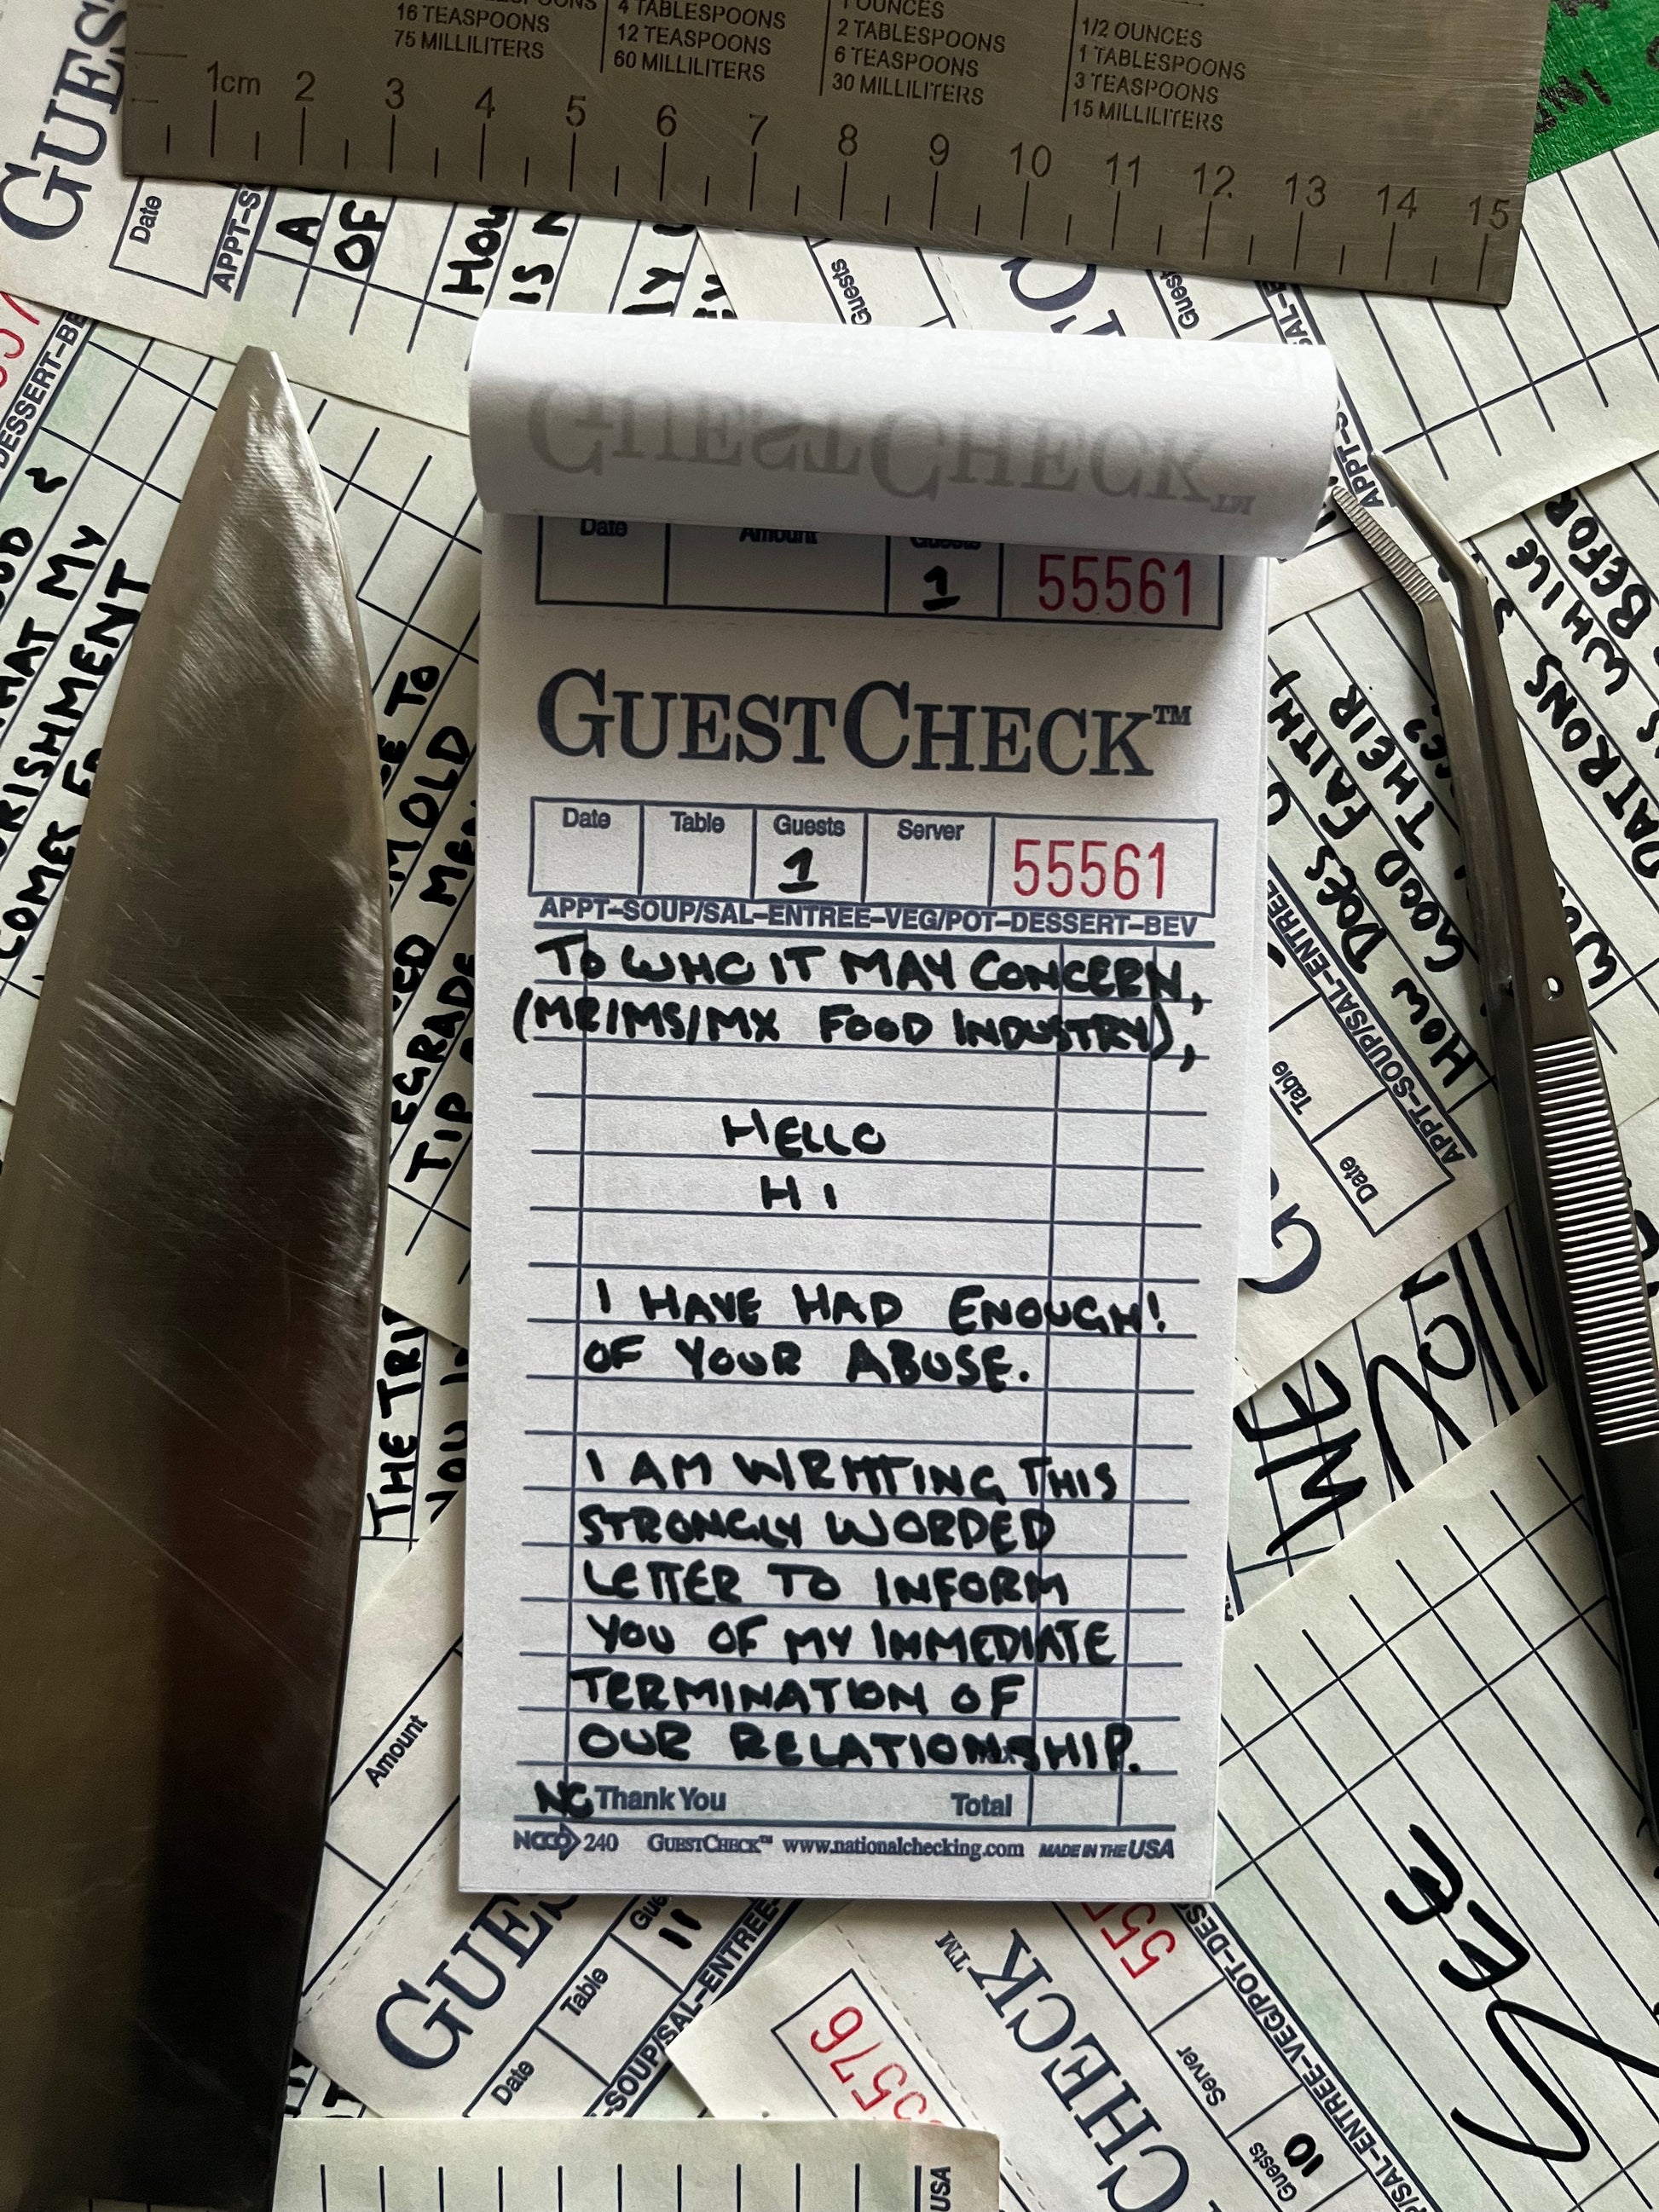 SPOONS
16 TEASPOONS
75 MILLILITERS
4 TABLESPOONS
12 TEASPOONS
60 MILLILITERS
1 OUNCES
2 TABLESPOONS
6 TEASPOONS
30 MILLILITERS
1/2 OUNCES
1 TABLESPOONS
3 TEASPOONS
15 MILLILITERS
1cm 2 3 4 5 6 7 8 9 10 11 12 13 14 15
GUESTCHECK™
Date Amount Guests
1 55561
GUESTCHECK™
Date Table Guests Server
1 55561
APPT–SOUP/SAL–ENTREE–VEG/POT–DESSERT–BEV
TO WHO IT MAY CONCERN,
(MR/MS/MX FOOD INDUSTRY),
HELLO
HI
I HAVE HAD ENOUGH!
OF YOUR ABUSE.
I AM WRITTING THIS
STRONGLY WORDED
LETTER TO INFORM
YOU OF MY IMMEDIATE
TERMINATION OF
OUR RELATIONSHIP.
NO Thank You Total
NCCO 240 GUESTCHECK™ www.nationalchecking.com MADE IN THE USA
Date
A
OF
IS
DESSERT–BE
THAT MY
COMES
OLD
TIP
THE
Guests
Guests
HOW DOES
GOOD FAITH,
GOOD THEIR
PATRONS
WHILE
BEFOR
Date
Table
APPT–SOUP/SAL–ENTREE
Amount
Date
Table
11
SOUP/SAL–ENTREE–
CHECK™
Server
Guests
10
SAL–ENTREE–VEG/POT–DES
USA